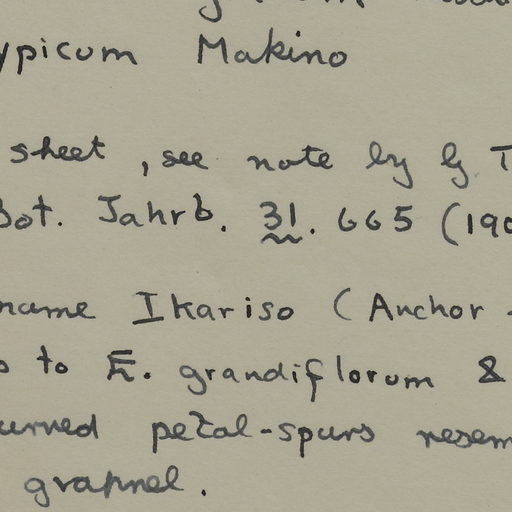 ypicum Makino
sheet, see note by G T
Bot. Jahrb. 31. 665 (190
name Ikariso (Anchor
to E. grandiflorum &
urved petal-spurs resem
grapnel.